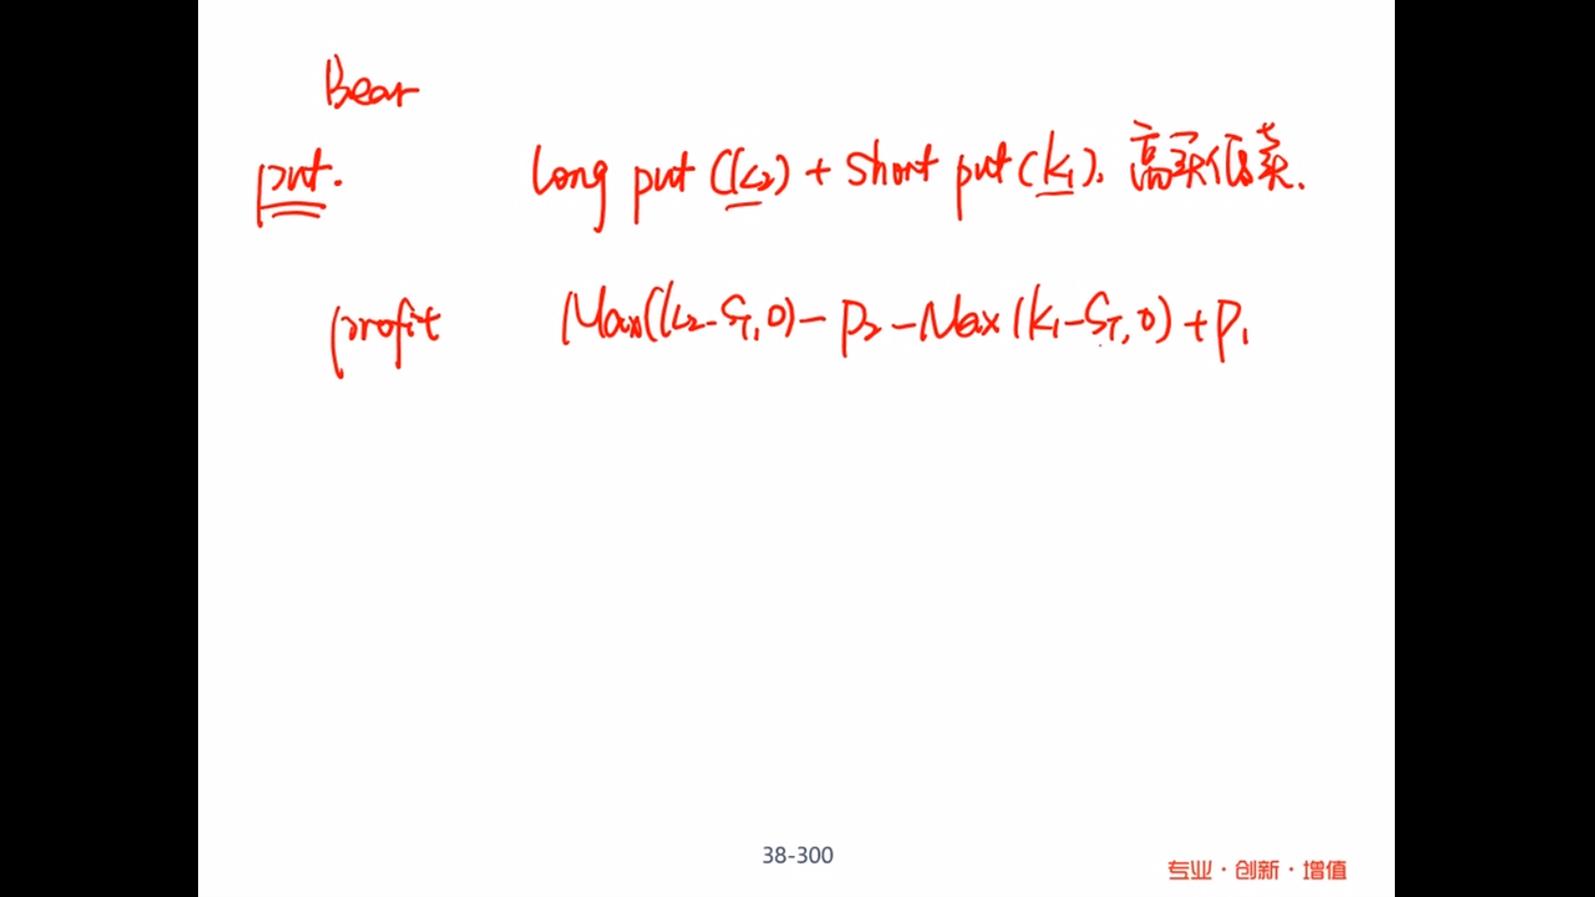 Bear
put. long put (K2) + short put (K1). 高买低卖.
profit Max(K2-ST,0)-P2-Max(K1-ST,0)+P1
38-300
专业·创新·增值